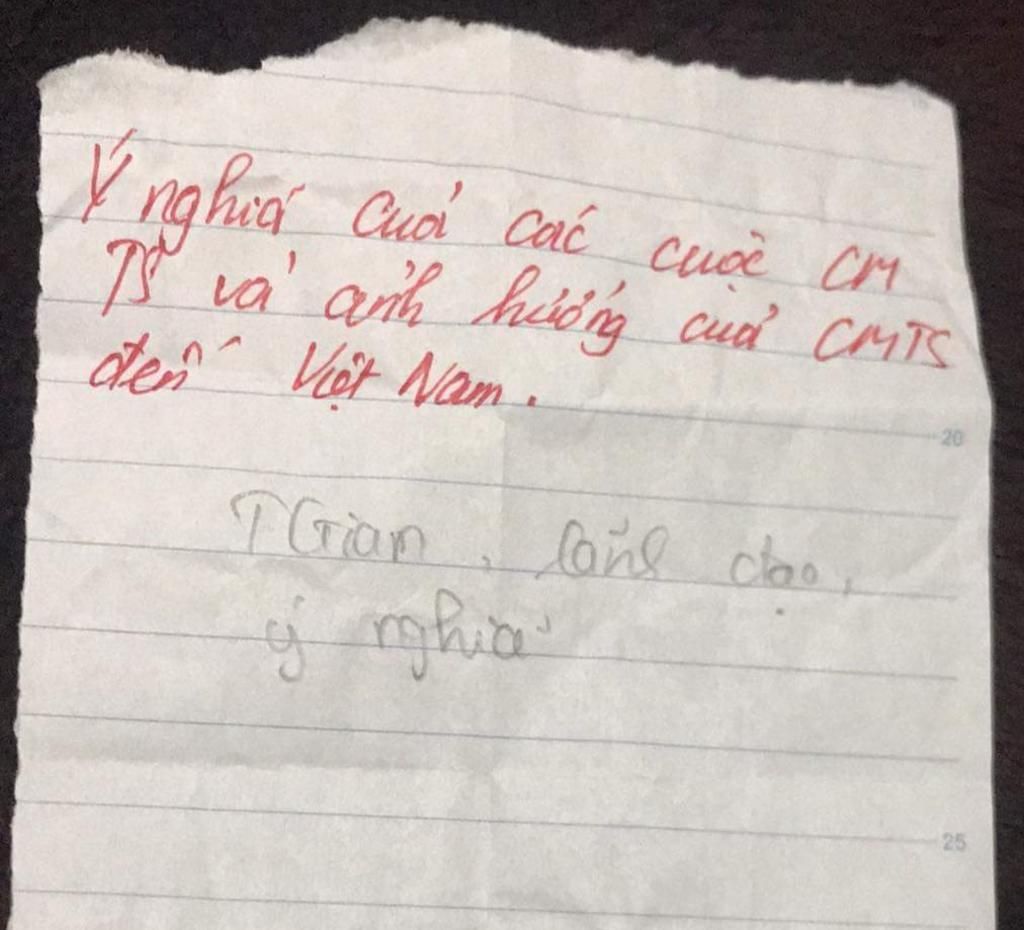 Ý nghĩa của các cuộc CM
TS và ảnh hưởng của CMTS
đến Việt Nam.
20
TGian, lãnh đạo,
ý nghĩa
25